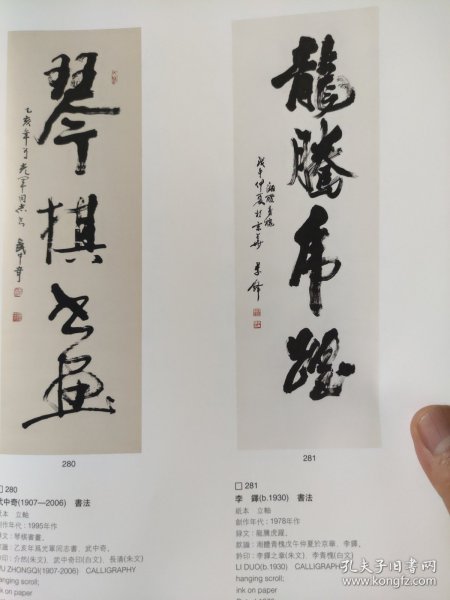 琴棋书画
乙亥年为光军同志书 武中奇
280
□280
武中奇(1907—2006) 書法
紙本 立軸
創作年代:1995年作
釋文:琴棋書畫。
款識:乙亥年爲光軍同志書,武中奇。
鈐印:介然(朱文) 武中奇印(白文) 長清(朱文)
WU ZHONGQI(1907-2006) CALLIGRAPHY
hanging scroll;
ink on paper
龍騰虎躍
湘醴青槐
戊午仲夏於京華 李鐸
281
□281
李 鐸(b.1930) 書法
紙本 立軸
創作年代:1978年作
釋文:龍騰虎躍。
款識:湘醴青槐戊午仲夏於京華,李鐸。
鈐印:李鐸之章(朱文) 李青槐(白文)
LI DUO(b.1930) CALLIGRAPHY
hanging scroll;
ink on paper
孔夫子旧书网